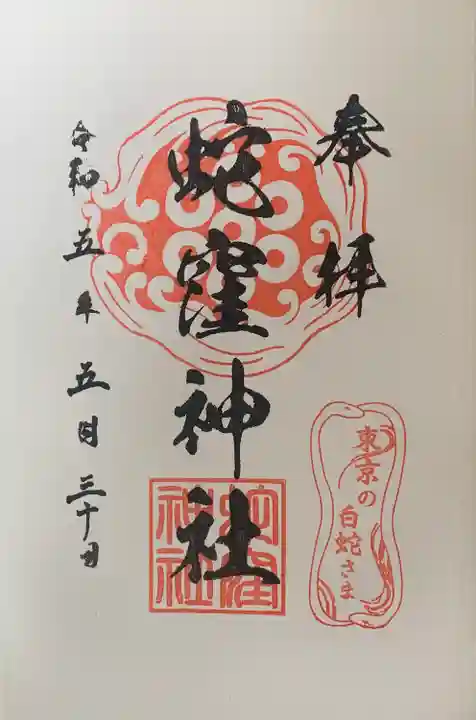 奉拝
蛇窪神社
令和五年五月三十日
東京の
白蛇さま
蛇窪
神社